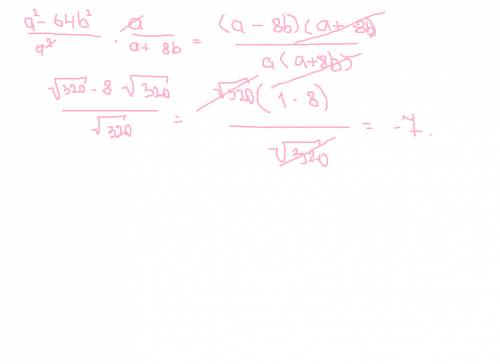 (a² - 64b²)/a² · a/(a + 8b) = ((a - 8b)(a + 8b))/(a(a + 8b))
(√320 - 8√320)/√320 = (√320(1 - 8))/√320 = -7.